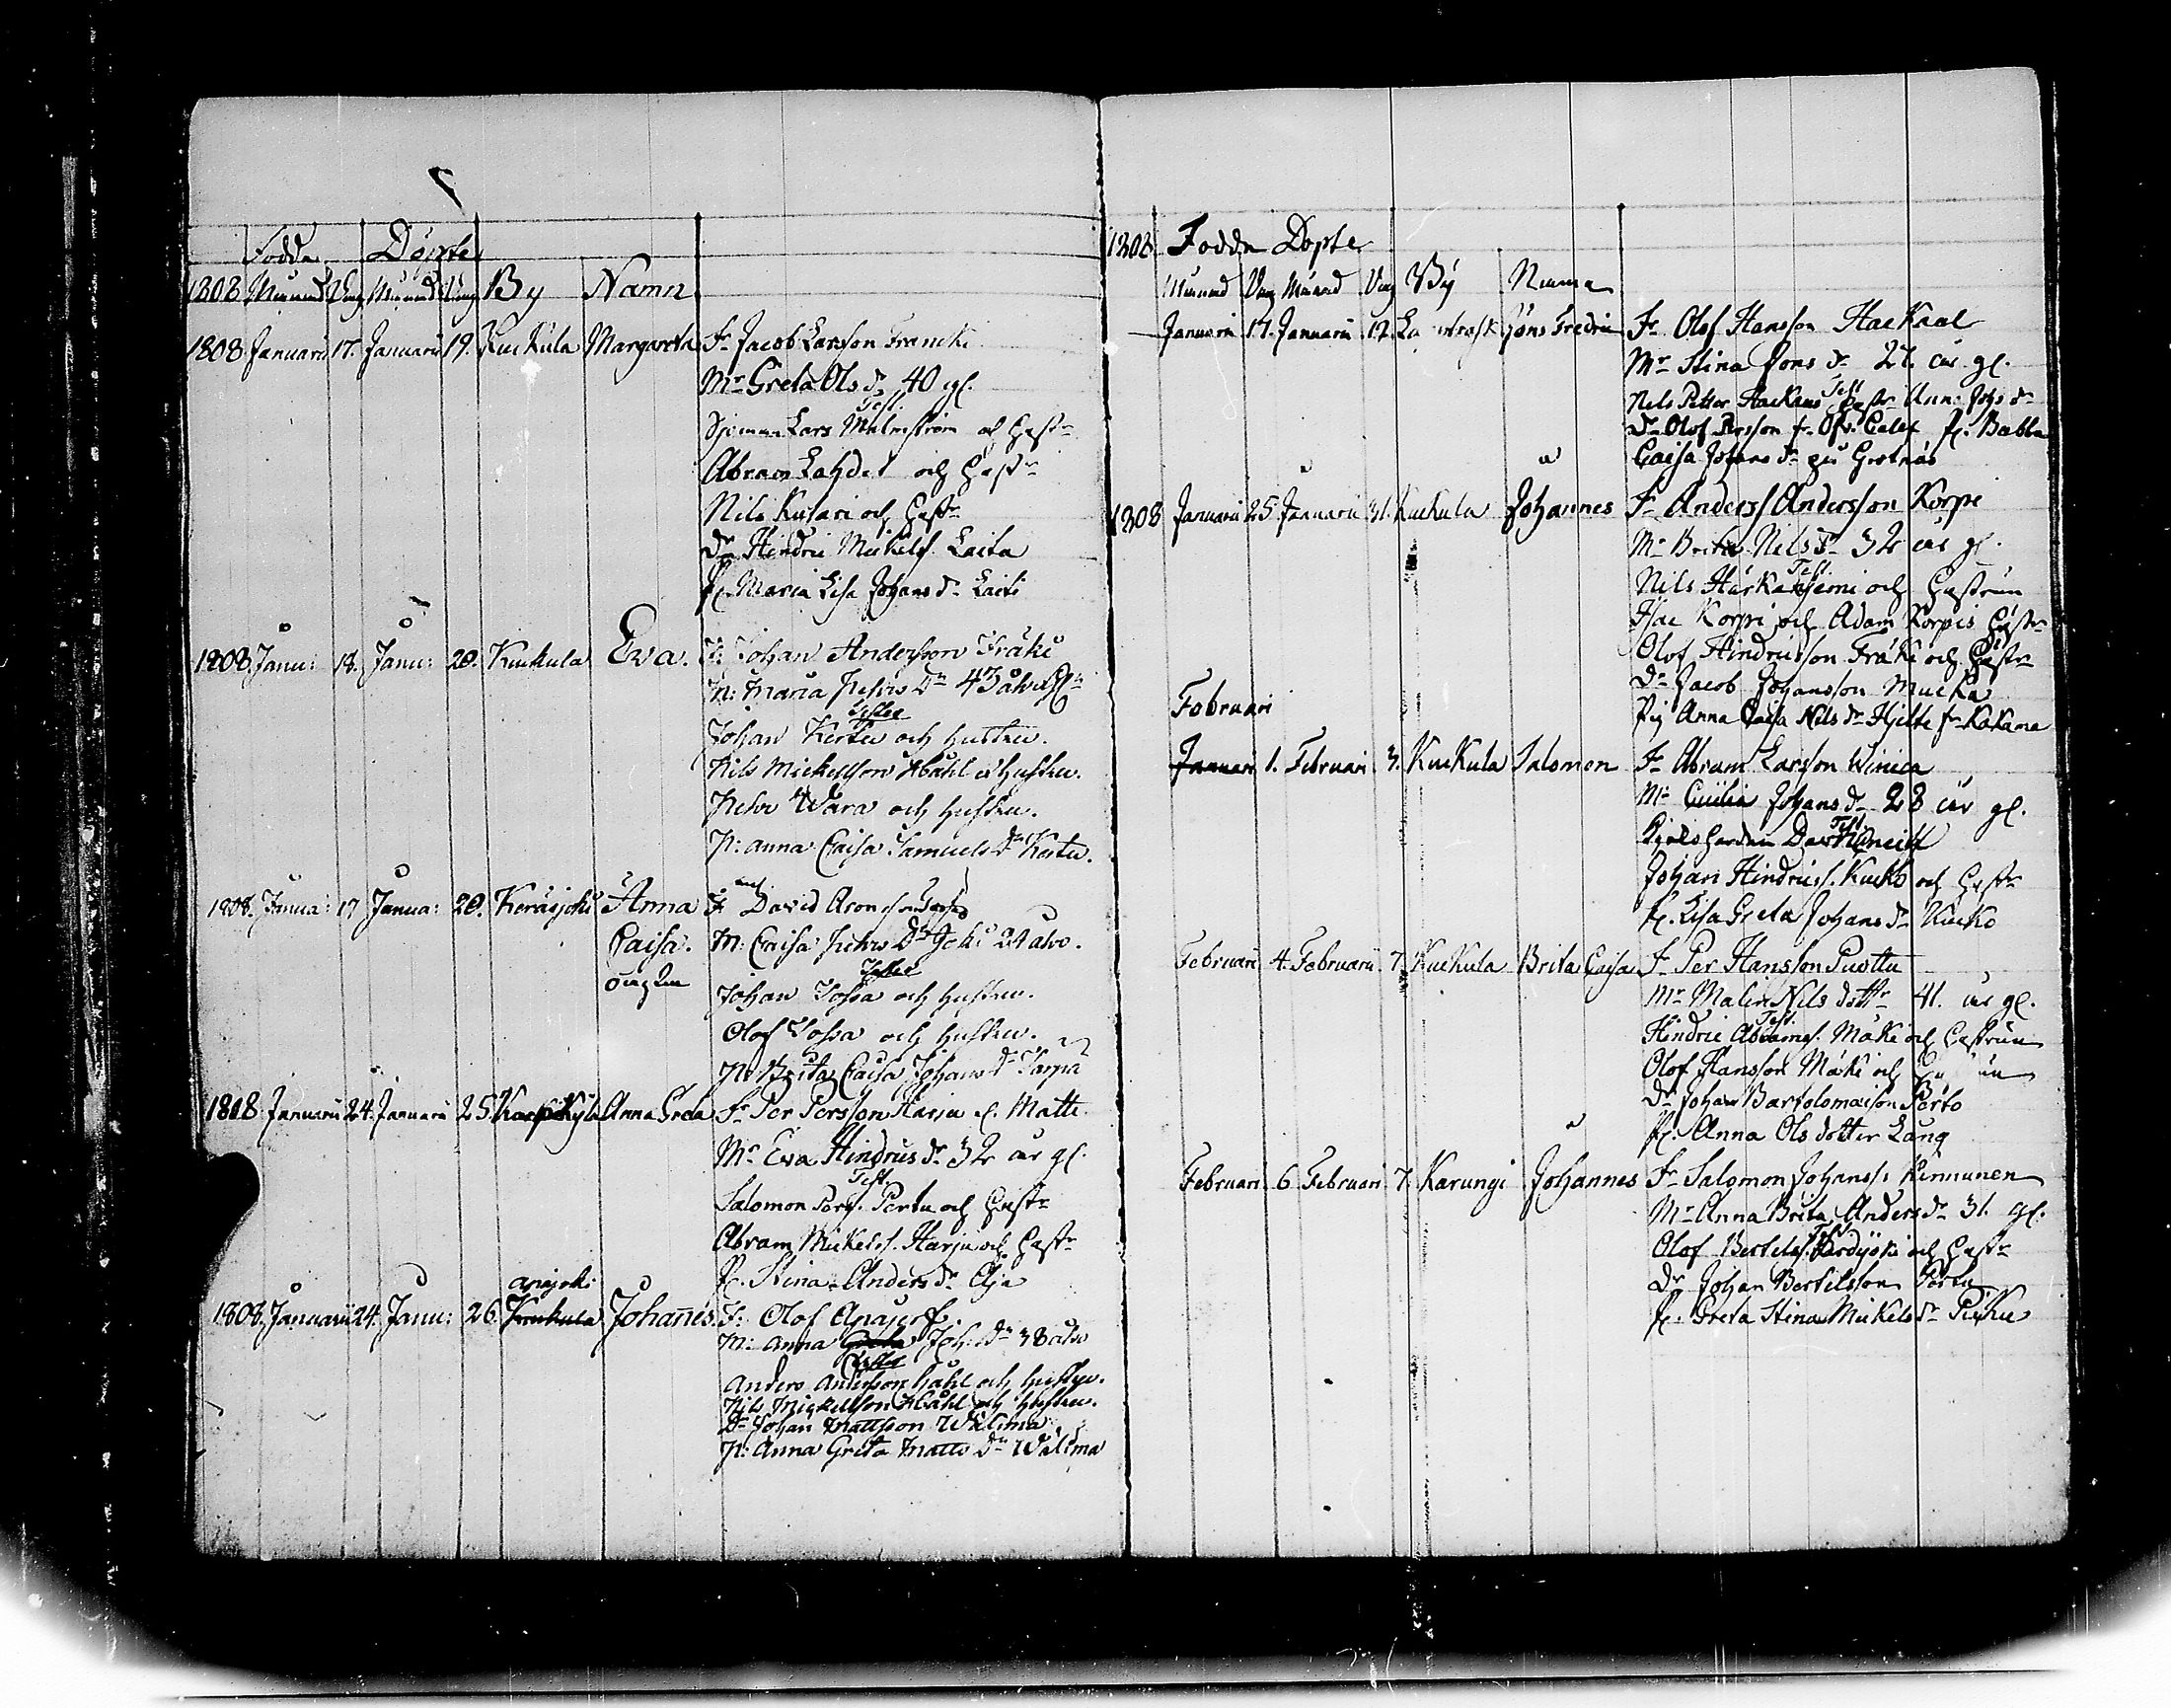 Födde Döpte
1808 Månad Dag Månad Dag By Namn
1808 Januarii 17. Januarii 19. Kuckula Margareta Fr Jacob Larsson Francki
Mr Greta Ols dr 40 gl.
Test.
Lars Malmström och hustr
Abram Lahdet och hustr
Nils Kusari och hustr
Dr Hindric Mickels. Laita
P. Maria Lisa Johans dr Laiti
1808. Janu: 18. Janu: 20. Kuckula Eva. F: Johan Andersson Fräki
M: Maria Dr 43
Testes
Johan Kertu och hustru.
Nils Mickellson Håhl o hustru.
Wara och hustru.
P: anna Caisa Samuels Dr Kertu.
1808. Janua: 17 Janua: 20. Keräsjoki Anna F: David
Caisa. M: Caisa Dr Joki 24
oägta
Testes
Johan Tossa och hustru.
Olof Tossa och hustru.
P: Brita Caisa Johans Dr
1808 Januarii 24. Januarii 25. Karsikylä Anna Greta Fr Per Persson Harju Matti
Mr Eva Hindrics dr 32 år gl.
Test.
Salomon Pers. Pertu och hustr
Abram Mickels. Harju och hustr
P. Stina Anders dr Oja
apajoki
1808. Januarii 24. Janu: 26. Kuckula Johannes. F: Olof
M: Anna Greta Joh: Dr 38
Testes
Anders Andersson håhl och hustru.
Nils Mickellson Håhl och hustru.
Dr Johan Mattsson Wälima
P: Anna Greta Matts Dr Wälima
1808 Födde Döpte
Månad Dag Månad Dag By Namn
Januarii 17. Januarii 17. Jöns Fredric Fr Olof Hansson Haekael
Mr Stina Jöns dr 27. år gl.
Test
Nils Petter hustr Anna Johs dr
Dr Olof Persson P. Babba
Caisa Johans dr på Grotnäs
1808 Januarii 25 Januarii 31. Kuckula Johannes Fr Anders Andersson Korpi
Mr Brita Nils dr 32 år gl.
Test.
Nils och hustrun
Korpi och Adam Korpis hustr
Olof Hindricsson Fräki och hustr
Dr Jacob Johansson Mucka
Pig Anna Caisa Nils dr Hjelte
Februari
Januari 1. Februari 3. Kuckula Salomon Fr Abram Larsson Winica
Mr Cecilia Johans dr 28 år gl.
Test
Johan Hindrics. Kucko och hustr
P. Lisa Greta Johans dr Kucko
Februarii 4. Februarii 7. Kuckula Brita Caisa Fr Per Hansson Puottu
Mr Malin Nils dottr 41. år gl.
Test.
Hindric Abrams. Mäki och hustrun
Olof Hansson Mäki och
Dr Johan Bartolomaison Perto
P. Anna Ols dotter Lång
Februari 6 Februari 7. Karungi Johannes Fr Salomon Johanss. Kinnunen
Mr Anna Brita Anders dr 31. gl.
Test
Olof Bertels. och hustr
Dr Johan Bertilsson Pertu
P. Greta Stina Mickels dr